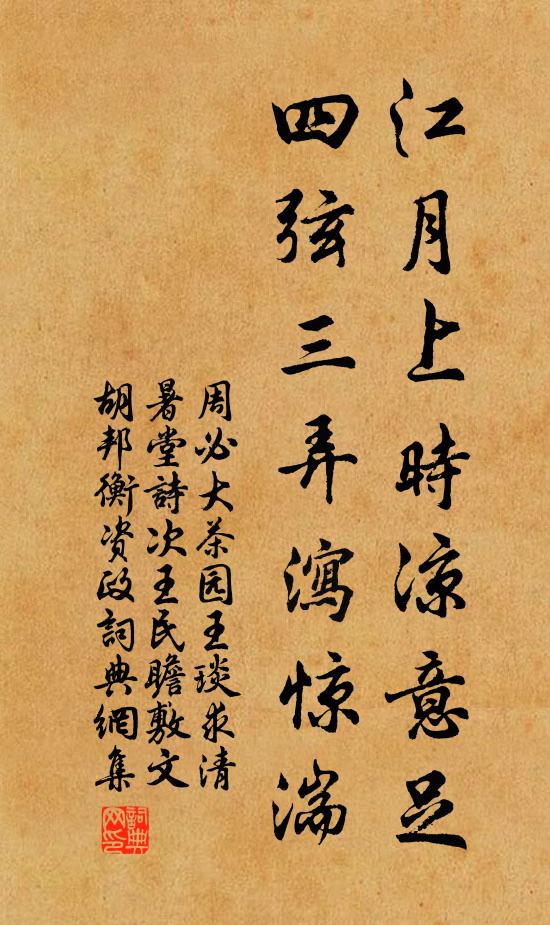 江月上時凉意足
四弦三弄瀉惊湍
周必大茶园王琰求清
暑堂詩次王民瞻敷文
胡邦衡资政詞典網集
詞典网印